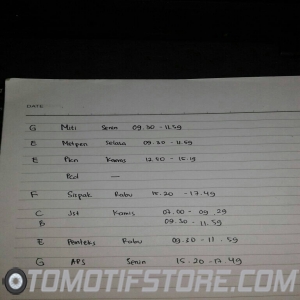 DATE
G Mtti Senin 09.30 - 11.59
E Metpen Selasa 09.30 - 11.59
E Pkn Kamis 12.50 - 15.19
Pcd —
F Simpak Rabu 15.20 - 17.49
C Jst Kamis 07.00 - 09.29
B 09.30 - 11.59
E Pemteks Rabu 09.30 - 11.59
G APS Senin 15.20 - 17.49
OTOMOTIFSTORE.COM